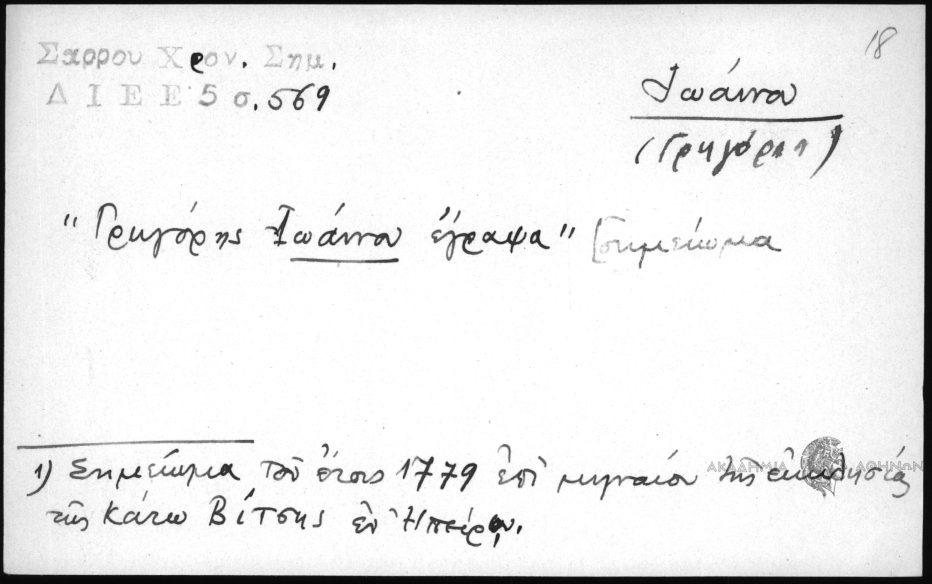 18
Σαρρου Χρον. Σημ.
Δ Ι Ε Ε 5 σ. 569
Ἰωάννου
(Γρηγόρης)
"Γρηγόρης Ἰωάννου ἔγραψα" (σημείωμα
1) Σημείωμα τοῦ ἔτους 1779 ἐπὶ μηναίου τῆς ἐκκλησίας
τῆς Κάτω Βίτσης ἐν Ἠπείρῳ.
ΑΚΑΔΗΜΙΑ ΑΘΗΝΩΝ